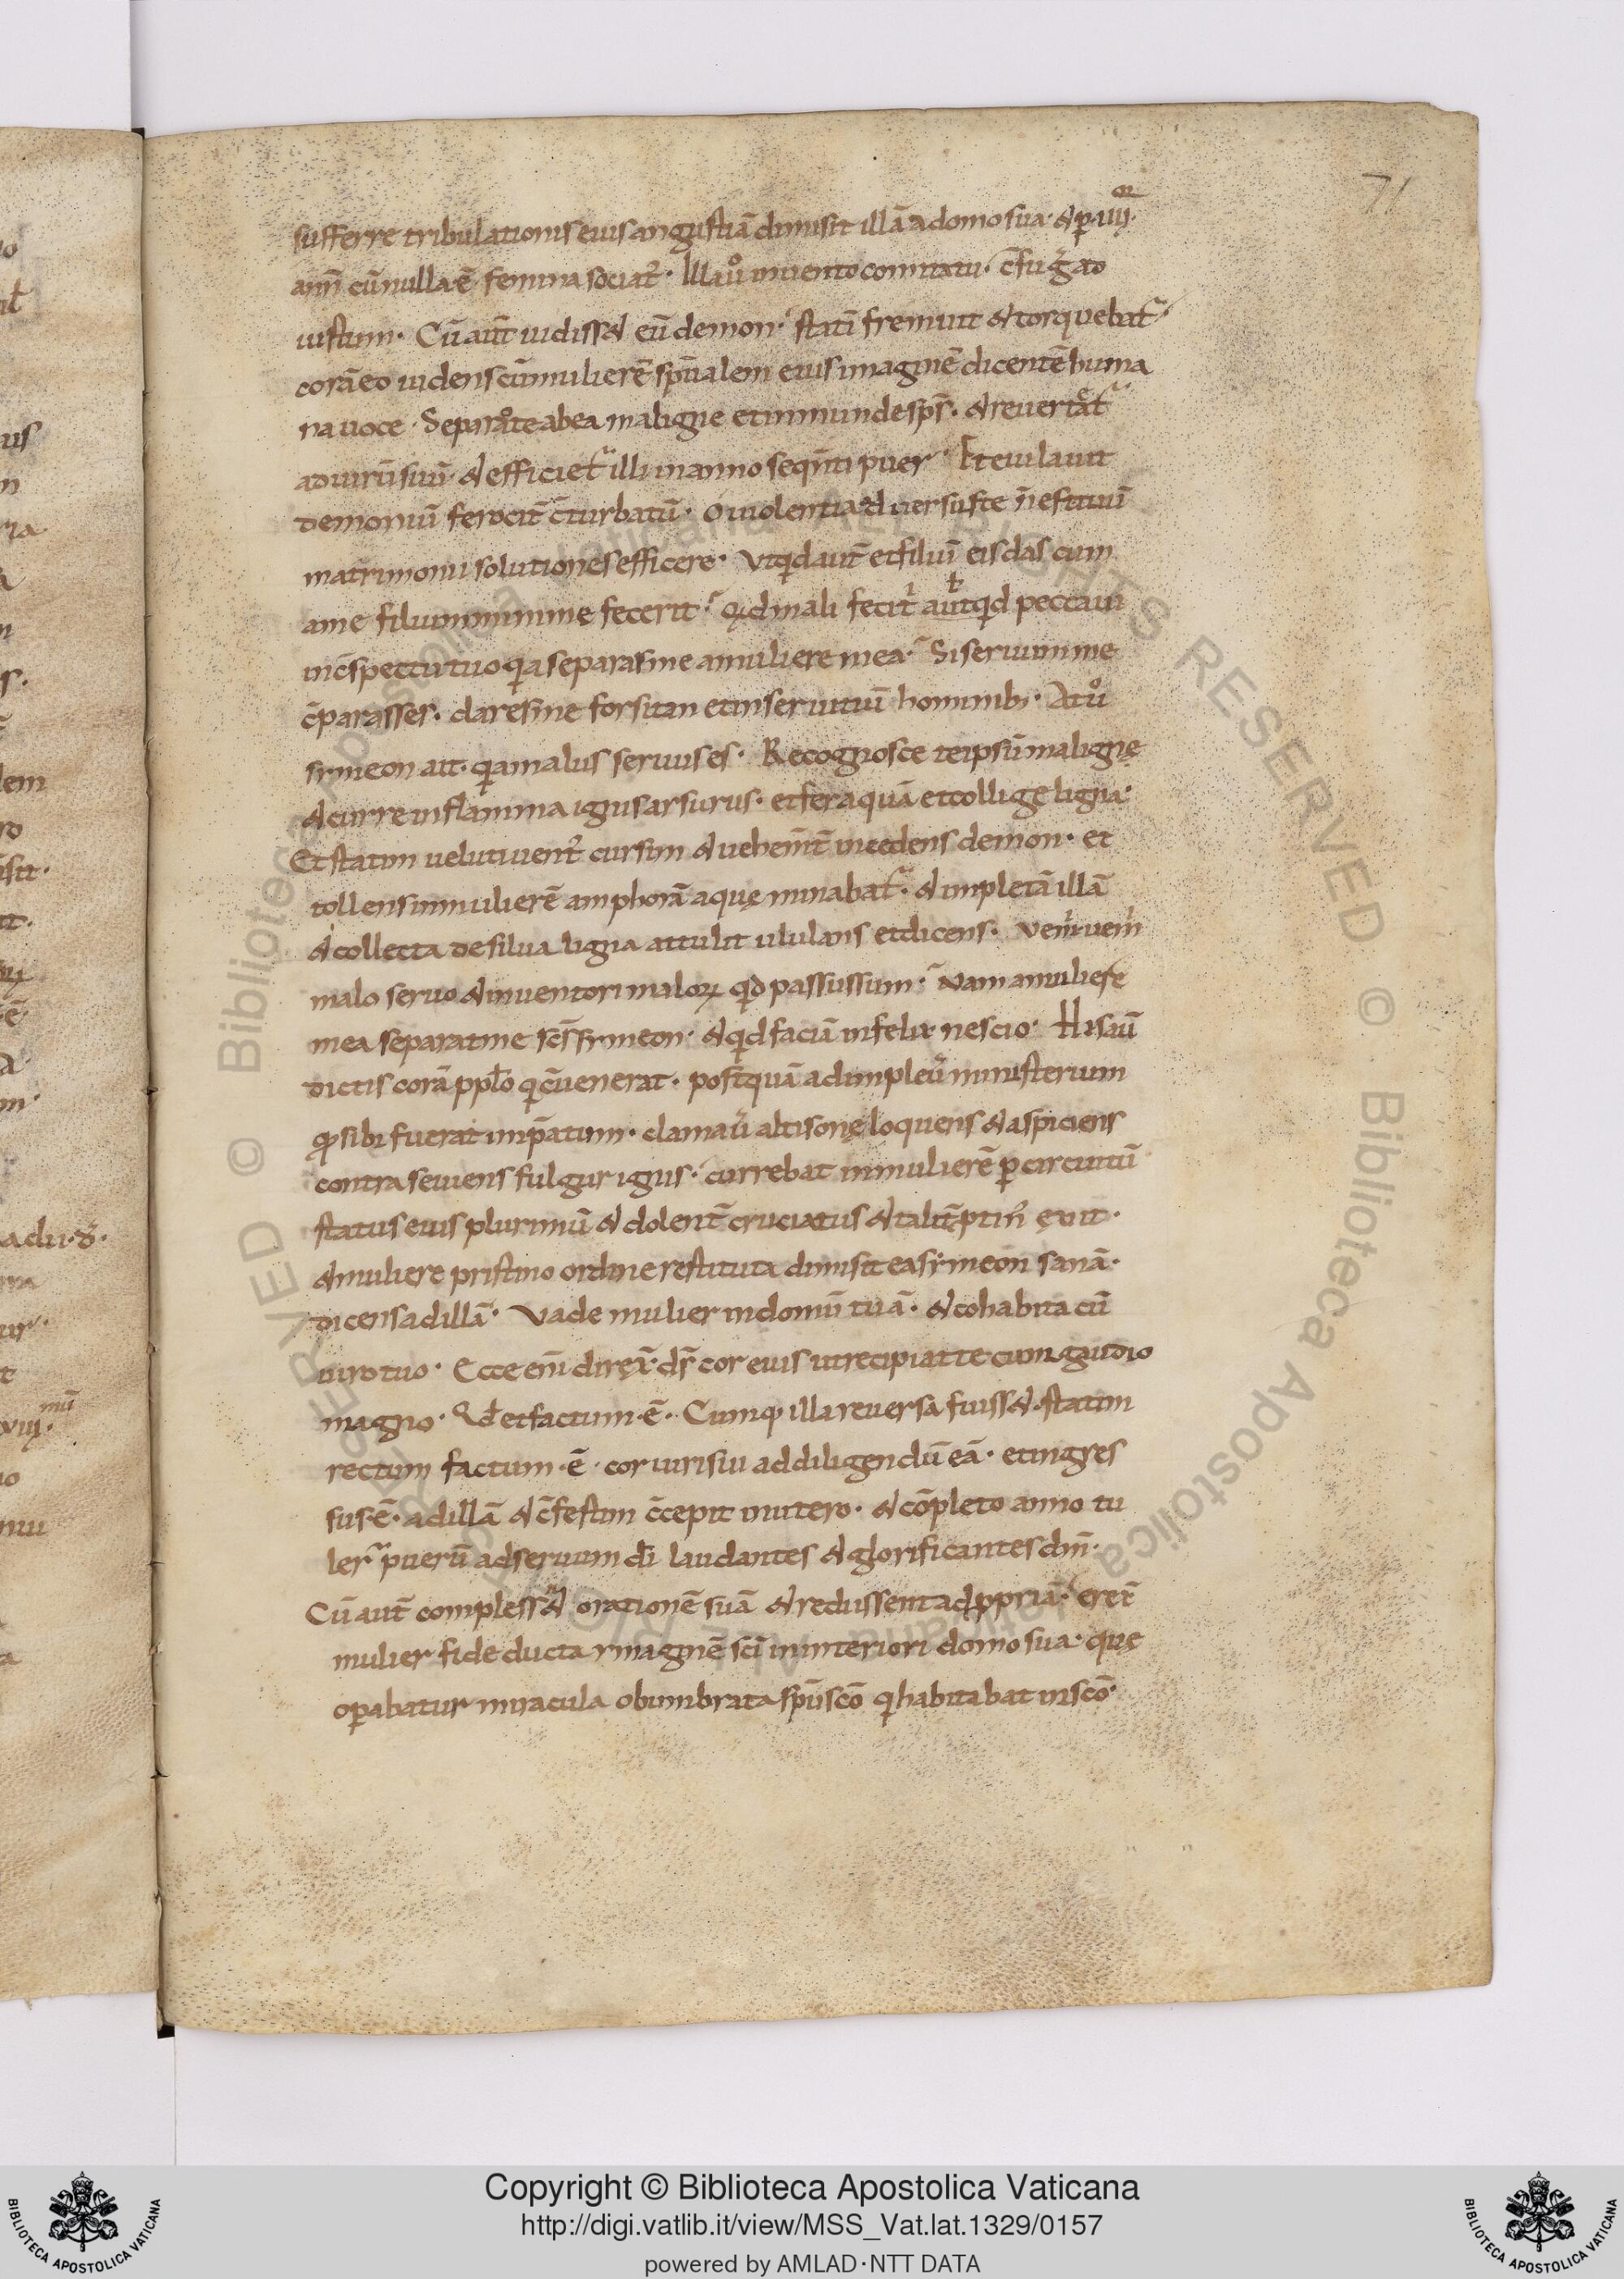 71
sufferre tribulationis eius angustiā dimisit illā a domo sua · & ꝑ uiiij ·
anñ cū nulla ·ē· femina sociat᷒ · Illa uͦ inuento comitatu · c̄fuḡ ad
iustum · Cū aut̄ uidiss& eū demon · statī fremuit & torquebat᷒ ·
corā eo uidens cū muliere sp̄ualem eius imaginē dicentē huma
na uoce · Separare ab ea maligne et inmunde sp̄s · & reuertat᷒
ad uirū suū · & efficiet᷒ illi in anno seqn̄ti puer · Et eiulauit
demoniū ferocit̄ c̄turbatū · O uiolentia aduersus te n̄ est tuū
matrimonii solutiones efficere · Vt qd aut̄ et filiū eis das cum
a me filium minime fecerit · Qd mali feci t̄ aut qd peccaui
in c̄spectu tuo qa separas me a muliere mea · Si seruum me
c̄parasses · dares me forsitan et in seruitiū hominib; · At uͦ
symeon ait · qa malus seruus es · Recognosce te ipsū maligne
& curre in flamma ignis arsurus · et fer aquā et collige ligna ·
Et statim uelut uent᷒ cursim & uehem̄t̄ incedens demon · et
tollens in mulierē amphorā aquę minabat᷒ · & impletā illā
& collecta de silua ligna attulit ululans et dicens · Vem̄ uem̄
malo seruo & inuentori maloꝝ qd passus sum · Nam a muliere
mea separat me sc̄s symeon · & qd faciā infelix nescio · His aū
dictis corā pplo q c̄uenerat · postquā adimpleū ministerium
ꝙ sibi fuerat imp̄atum · clamaū altisone loquens & aspiciens
contra se uiens fulgur ignis · currebat in mulierē ꝑ circuitū
status eius plurimū & dolent̄ cruciatus & talit̄ ꝓtin᷒ exiit ·
& muliere pristino ordine restituta dimisit ea symeon sanā ·
dicens ad illā · Vade mulier in domū tuā · & cohabita cū
uiro tuo · Ecce eni direx̄ · ds̄ cor eius ut recipiat te cum gaudio
magno · Qd et factum · ē · Cumq; illa reuersa fuiss& · statim
rectum factum · ē · cor uiri sui ad diligendū eā · et ingres
sus · ē · ad illā & c̄festim c̄cepit in utero · & cōpleto anno tu
ler᷒ puerū ad seruum dī laudantes & glorificantes dm̄ ·
Cū aut̄ compless& orationē suā & redissent ad ꝓpria · erex̄
mulier fide ducta ymaginē sc̄i in interiori domo sua · quę
oꝑabatur miracula obumbrata sp̄u sc̄o q habitabat in sc̄o ·
Copyright © Biblioteca Apostolica Vaticana
http://digi.vatlib.it/view/MSS_Vat.lat.1329/0157
powered by AMLAD·NTT DATA
BIBLIOTECA APOSTOLICA VATICANA
BIBLIOTECA APOSTOLICA VATICANA